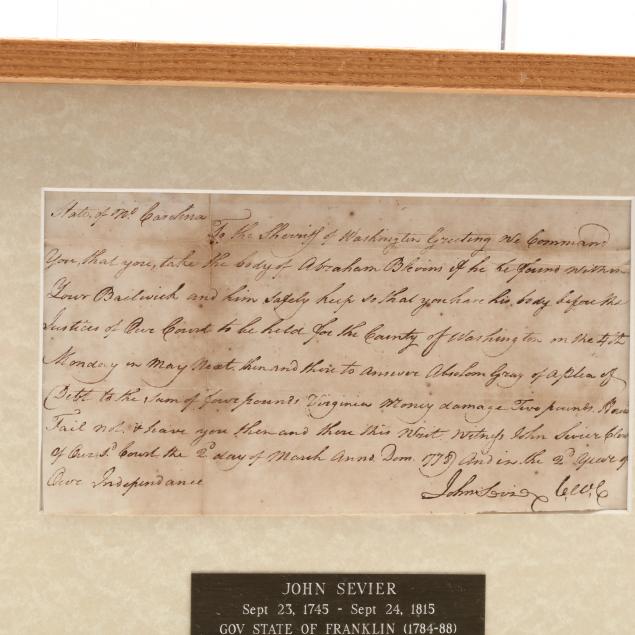 State of No. Carolina
To the Sherriff of Washington Greeting We Command
You, that you, take the body of Abraham Blevins if he be found within
Your Bailwick and him safely keep so that you have his body before the
Justices of Our Court to be held for the County of Washington on the 4th
Monday in May Next, then and there to answer Absolom Gray of a plea of
Debt to the sum of four pounds Virginia Money damage Two pounds
Fail not, & have you then and there this Writ. Witness John Sevier Clerk
of Our Sd. Court the 2d day of March Anno Dom. 1778 And in the 2d Year of
Our Independance
John Sevier C.W.C
JOHN SEVIER
Sept 23, 1745 - Sept 24, 1815
GOV STATE OF FRANKLIN (1784-88)